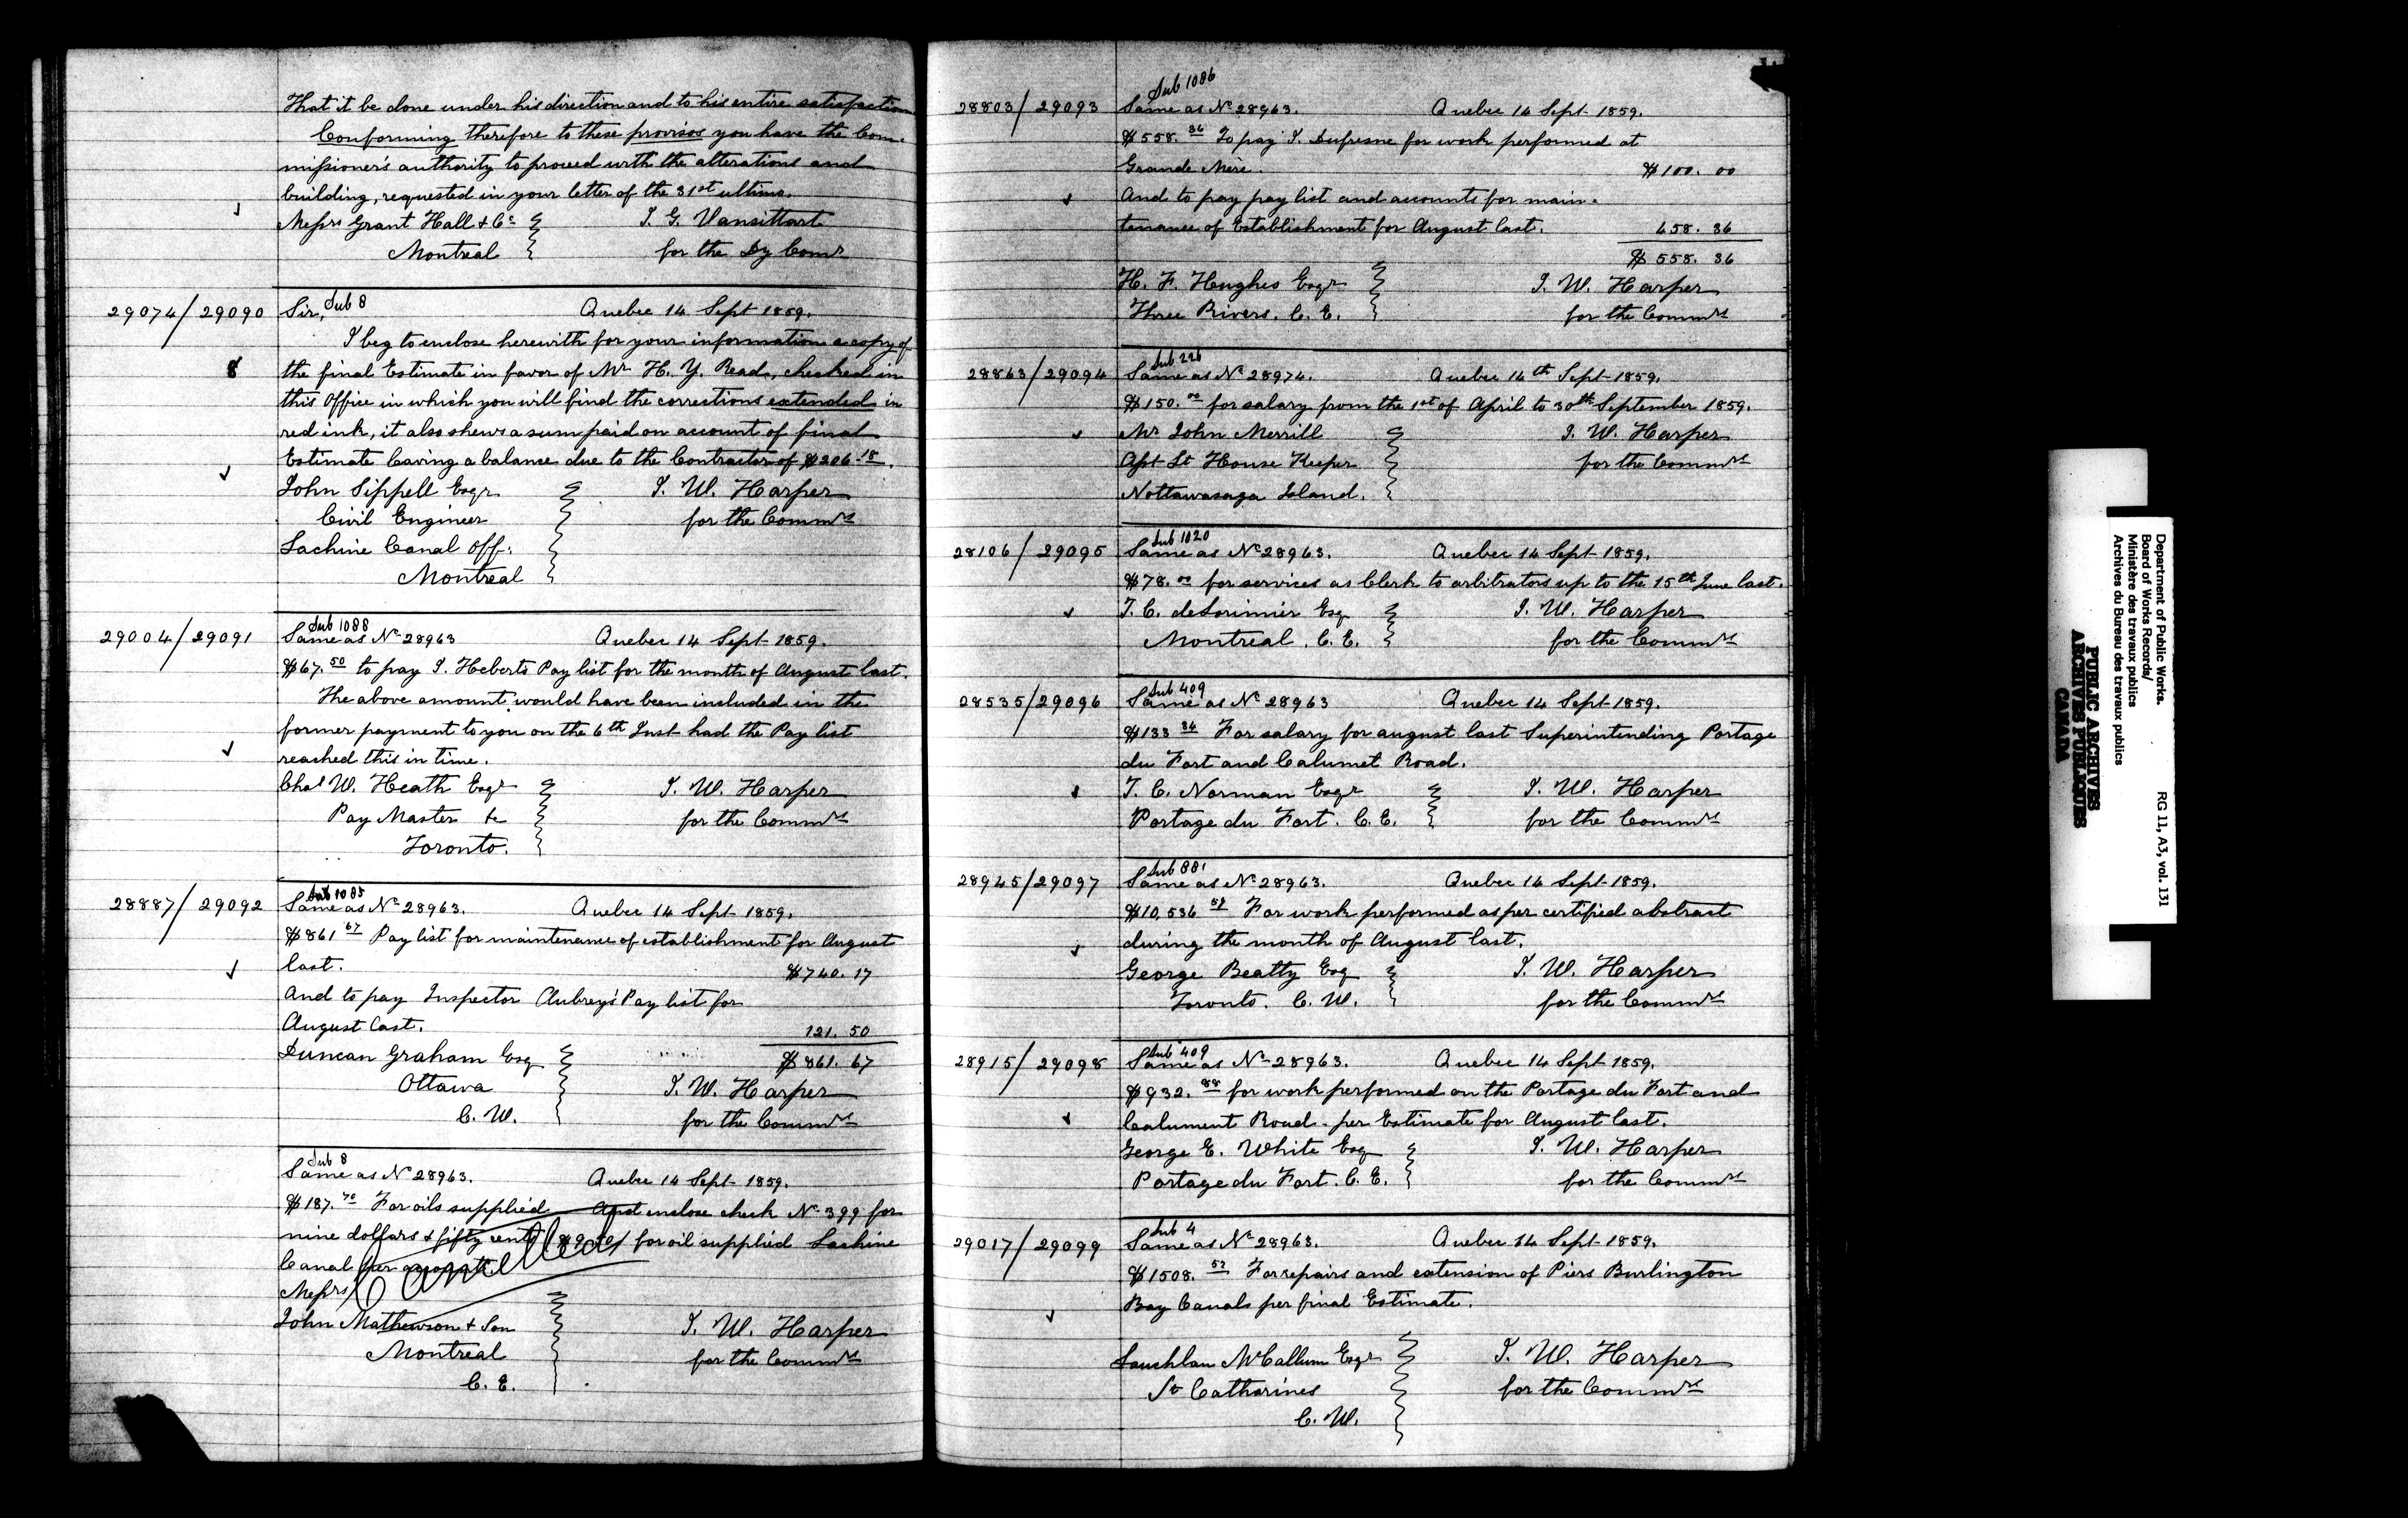 That it be done under his direction and to his entire satisfaction
Conforming therefore to these provisos you have the Com-
missioner's authority to proceed with the alterations and
building, requested in your letter of the 31st ultimo.
Messrs Grant Hall & Co
T. G. Vansittart
Montreal
for the Dy Comr
29074/29090
Sub 8
Sir,
Quebec 14 Sept 1859.
I beg to enclose herewith for your information a copy of
8
the final Estimate in favor of Mr H. Y. Read, checked in
this Office in which you will find the corrections extended in
red ink, it also shews a sum paid on account of final
Estimate leaving a balance due to the Contractor of $206.18.
John Sippell Esqr
T. W. Harper
Civil Engineer
for the Commrs
Lachine Canal Off:
Montreal
29004/29091
Sub 1088
Same as No 28963
Quebec 14 Sept 1859.
$67.50 to pay I. Heberts Pay list for the month of August last.
The above amount would have been included in the
former payment to you on the 6th Inst had the Pay list
reached this in time.
Chas W. Heath Esqr
T. W. Harper
Pay Master &c
for the Commrs
Toronto.
28887/29092
Sub 1085
Same as No 28963.
Quebec 14 Sept 1859.
$861 67 Pay list for maintenance of establishment for August
last.
$740.17
And to pay Inspector Aubrey's Pay list for
August last.
121.50
$861.67
Duncan Graham Esq
Ottawa
T. W. Harper
C. W.
for the Commrs
Sub 8
Same as No 28963.
Quebec 14 Sept 1859.
$187.70 For oils supplied And enclose check No 399 for
nine dollars & fifty cents for oil supplied Lachine
Canal per account.
Cancelled
Messrs
John Mathewson & Son
T. W. Harper
Montreal
for the Commrs
C. E.
28803/29093
Sub 1086
Same as No 28963.
Quebec 14 Sept 1859.
$558.36 To pay I. Dufresne for work performed at
Grande Mère.
$100.00
And to pay pay list and accounts for main-
tenance of Establishment for August last.
458.36
$558.36
H. F. Hughes Esqr
T. W. Harper
Three Rivers. C. E.
for the Commrs
28863/29094
Sub 226
Same as No 28974.
Quebec 14th Sept 1859.
$150.00 for salary from the 1st of April to 30th September 1859.
Mr John Merrill
T. W. Harper
Asst Lt House Keeper
for the Commrs
Nottawasaga Island.
28106/29095
Sub 1020
Same as No 28963.
Quebec 14 Sept 1859.
$78.00 for services as Clerk to arbitrators up to the 15th June last.
T. C. deLorimier Esq
T. W. Harper
Montreal. C. E.
for the Commrs
28535/29096
Sub 409
Same as No 28963
Quebec 14 Sept 1859.
$133 34 For salary for august last Superintending Portage
du Fort and Calumet Road.
T. C. Norman Esqr
T. W. Harper
Portage du Fort. C. E.
for the Commrs
28945/29097
Sub 881
Same as No 28963.
Quebec 14 Sept 1859.
$10,536 59 For work performed as per certified abstract
during the month of August last.
George Beatty Esq
T. W. Harper
Toronto. C. W.
for the Commrs
28915/29098
Sub 409
Same as No 28963.
Quebec 14 Sept 1859.
$932.88 for work performed on the Portage du Fort and
Calument Road - per Estimate for August last.
George E. White Esq
T. W. Harper
Portage du Fort. C. E.
for the Commrs
29017/29099
Sub 4
Same as No 28963.
Quebec 14 Sept 1859.
$1508.53 For repairs and extension of Piers Burlington
Bay Canals per final Estimate.
Lauchlan McCallum Esqr
T. W. Harper
St Catharines
for the Commrs
C. W.
Department of Public Works.
Board of Works Records/
Ministère des travaux publics
Archives du Bureau des travaux publics
RG 11, A3, vol. 131
PUBLIC ARCHIVES
ARCHIVES PUBLIQUES
CANADA